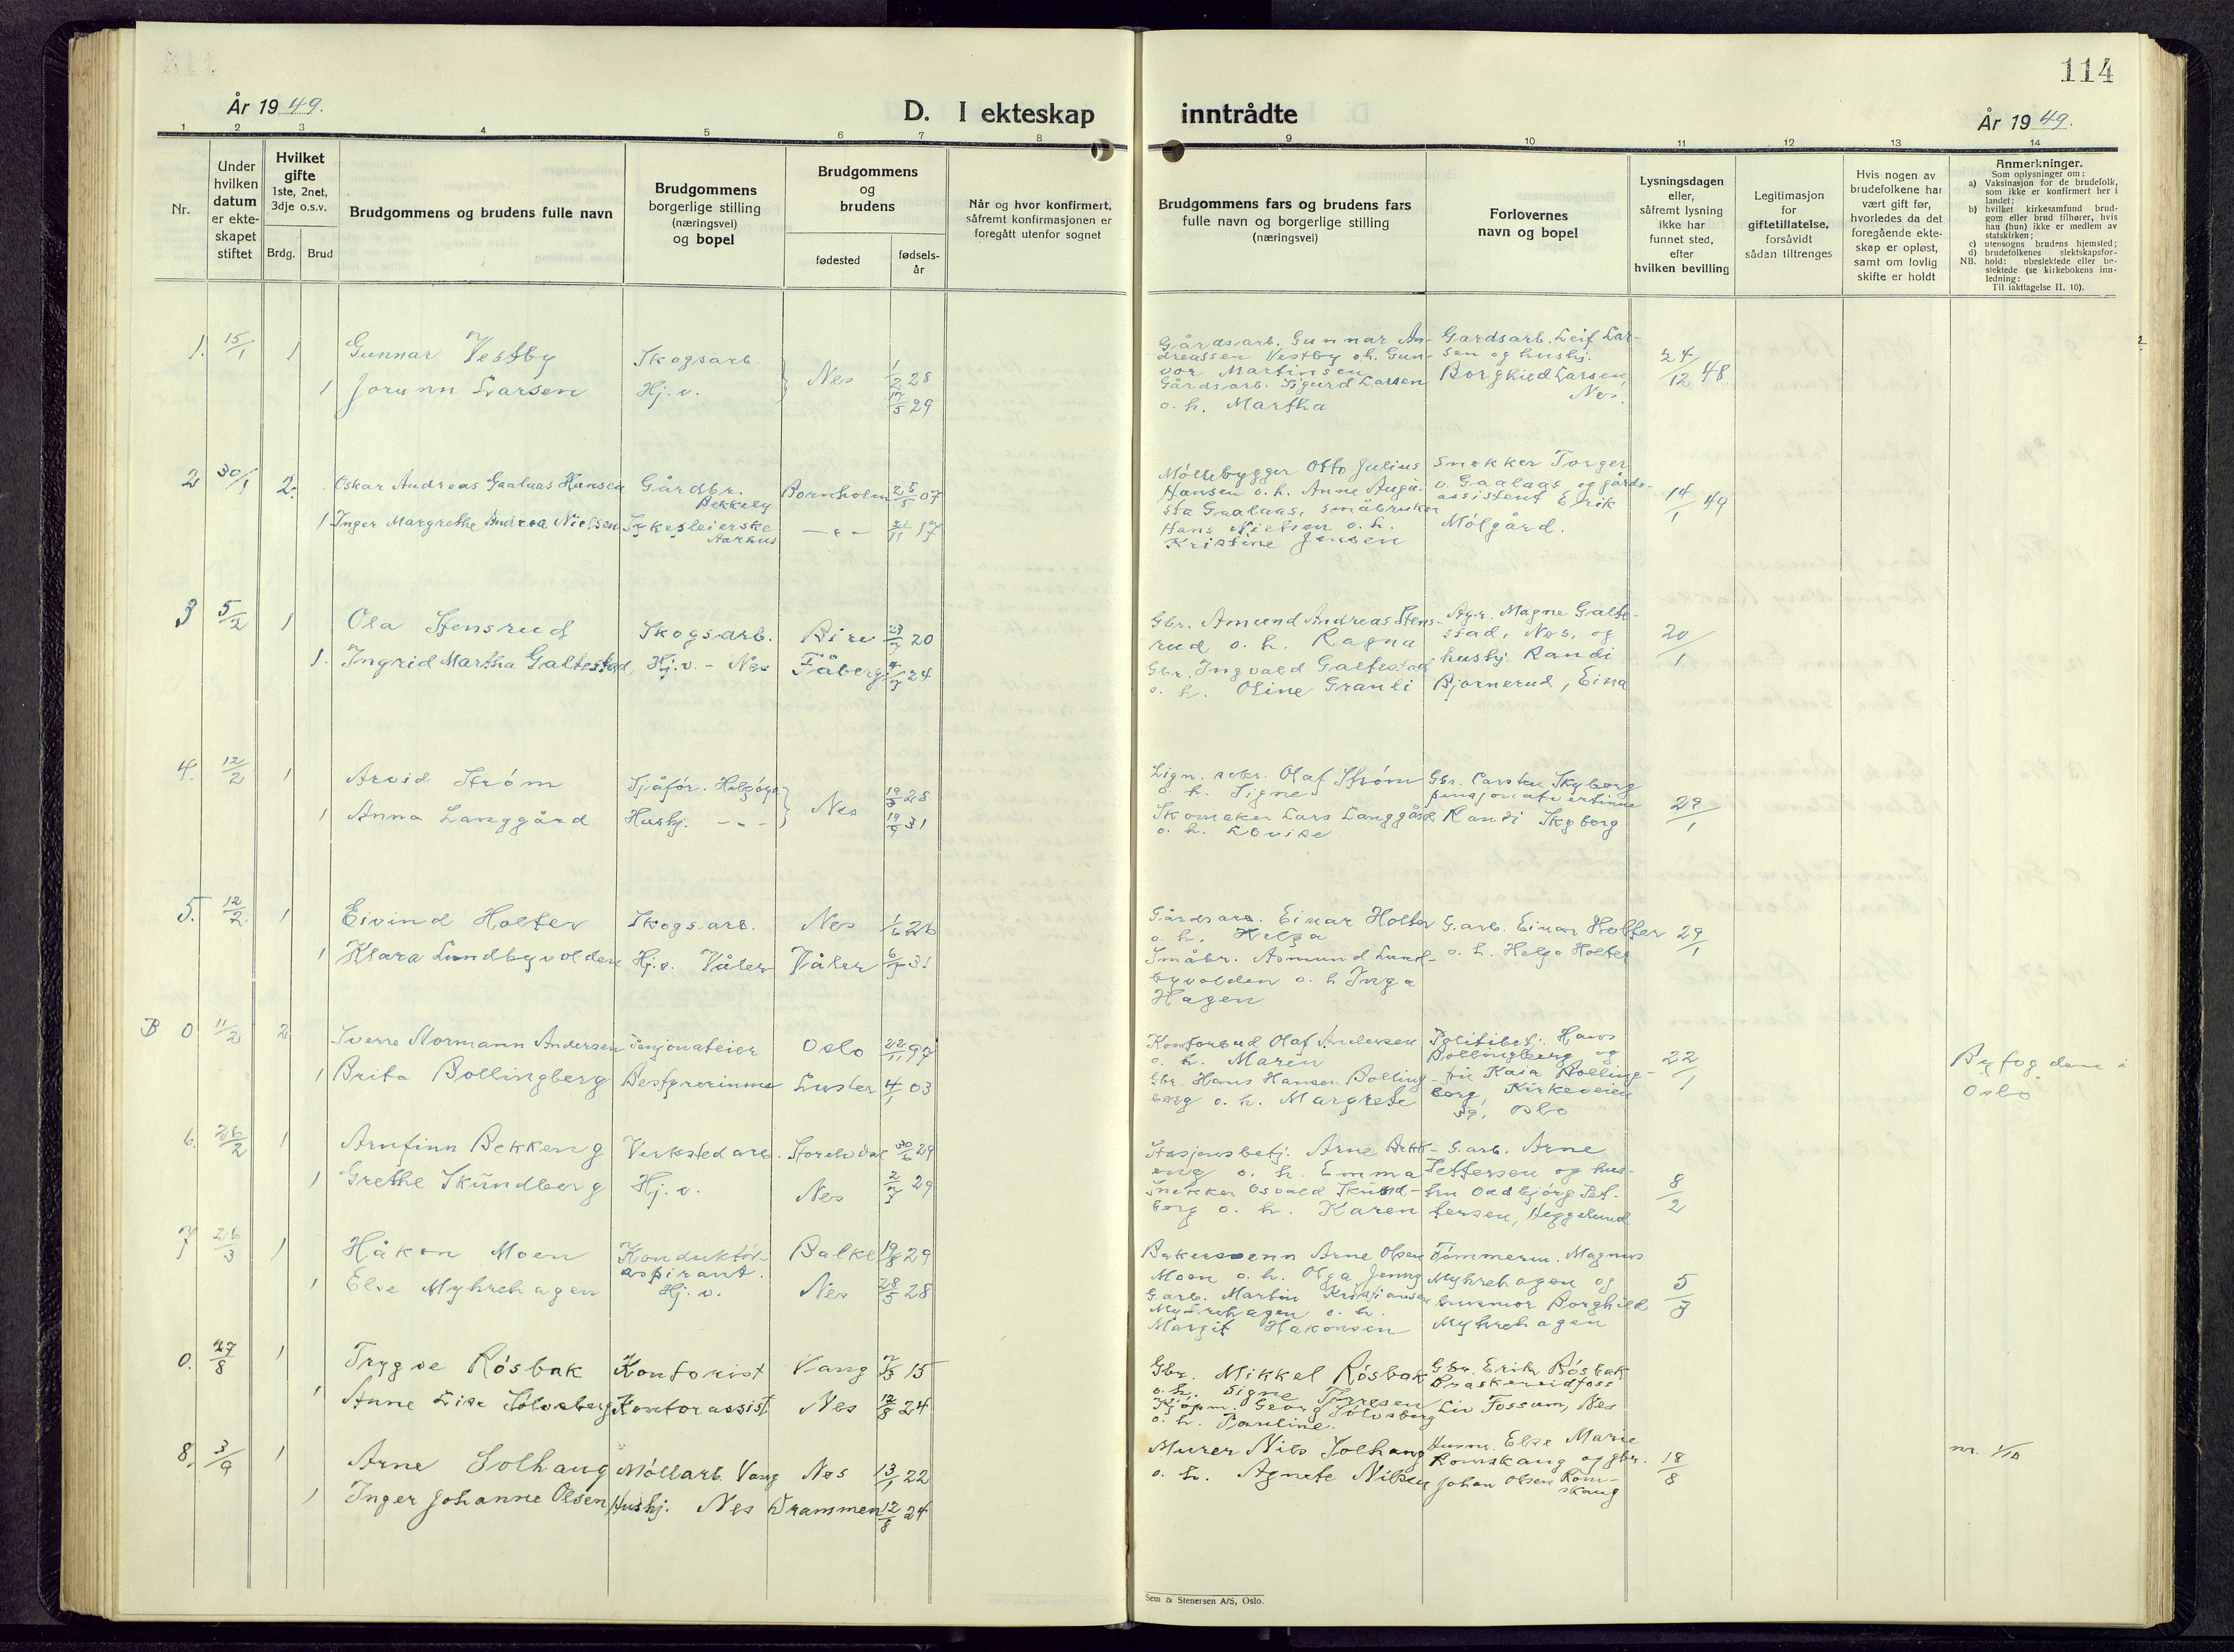 114
År 1949.
D. I ekteskap inntrådte
År 1949.
1 2 3 4 5 6 7 8 9 10 11 12 13 14
Nr.
Under hvilken datum er ekteskapet stiftet
Hvilket gifte 1ste, 2net, 3dje o.s.v.
Brdg. Brud
Brudgommens og brudens fulle navn
Brudgommens borgerlige stilling (næringsvei) og bopel
Brudgommens og brudens
fødested
fødsels-år
Når og hvor konfirmert, såfremt konfirmasjonen er foregått utenfor sognet
Brudgommens fars og brudens fars fulle navn og borgerlige stilling (næringsvei)
Forlovernes navn og bopel
Lysningsdagen eller, såfremt lysning ikke har funnet sted, efter hvilken bevilling
Legitimasjon for giftetillatelse, forsåvidt sådan tiltrenges
Hvis nogen av brudefolkene har vært gift før, hvorledes da det foregående ekteskap er opløst, samt om lovlig skifte er holdt
Anmerkninger.
Som oplysninger om:
a) Vaksinasjon for de brudefolk, som ikke er konfirmert her i landet;
b) hvilket kirkesamfund brudgom eller brud tilhører, hvis han (hun) ikke er medlem av statskirken;
c) utensogns brudens hjemsted;
d) brudefolkenes slektskapsforhold: ubeslektede eller beslektede (se kirkebokens innledning:
NB.
Til iakttagelse II. 10).
1. 15/1 1 Gunnar Vestby Skogsarb. Nes 1/2 28
1 Jorunn Larsen Hj.v. 17/5 29
Gårdsarb. Gunnar An-
dreassen Vestby o.h. Gun-
vor Martinsen
Gårdsarb. Sigurd Larsen
o.h. Martha
Gardsarb. Leif Lar-
sen og hushj.
Borghild Larsen,
Nes.
24/12 48
2 30/1 2. Oskar Andreas Gaalaas Hansen Gårdbr. Bekkely Bornholm 25/5 07
1 Inger Margrethe Andrea Nielsen Sykepleierske Aarhus —"— 21/11 17
Møllebygger Otto Julius
Hansen o.h. Anne Augu-
sta Gaalaas, småbruker
Hans Nielsen o.h.
Kristine Jensen
Snekker Torger
o. Gaalaas og gårds-
assistent Erik
Mølgård.
14/1 49
3 5/2 1 Ola Stensrud Skogsarb. Biri 23/7 20
1. Ingrid Martha Galtestad, Hj.v. - Nes Fåberg 4/7 24
Gbr. Amund Andreas Stens-
rud o.h. Ragna
Gbr. Ingvald Galtestad
o. h. Oline Granli
Agr. Magne Galte-
stad, Nes, og
hushj. Randi
Bjørnerud, Eina
20/1
4. 12/2 1 Arvid Strøm Sjåfør. Helgøya Nes 19/5 28
1 Anna Langgård Hushj. —"— 19/9 31
Lign. sekr. Olaf Strøm
o. h. Signe
Skomaker Lars Langgård
o. h. Lovise
Gbr. Carsten Skyberg
pensjonatvertinne
Randi Skyberg
29/1
5. 12/2 1 Eivind Holter Skogsarb. Nes 1/6 26
1 Klara Lundbyvolden Hj.v. Våler Våler 6/7 31
Gårdsarb. Einar Holter
o.h. Helga
Småbr. Asmund Lund-
byvolden o. h Inga
Hagen
G.arb. Einar Holter
o.h. Helga Holter
29/1
B 0 11/2 2 Sverre Normann Andersen Pensjonateier Oslo 22/11 97
1 Brita Bollingberg Bestyrerinne Luster 4/1 03
Kontorbud Olaf Andersen
o. h. Maren
Gbr. Hans Hansen Bolling-
berg o.h. Margrete
Politibetj. Hans
Bollingberg og
fru Kaia Bolling-
berg, Kirkeveien
59, Oslo
22/1
Byfogden i
Oslo
6. 26/2 1 Arnfinn Bekkeng Verkstedarb. Storelvdal 30/6 29
1 Grethe Skundberg Hj.v. Nes 2/7 29
Stasjonsbetj. Arne Bekk-
eng o. h. Emma
Snekker Osvald Skund-
berg o. h. Karen
G.arb. Arne
Pettersen og hus-
fru Oddbjørg Pet-
tersen, Heggelund
8/2
7 26/3 1 Håkon Moen Konduktør-
aspirant. Balke 19/8 29
1 Else Myhrehagen Hj.v. Nes 28/5 28
Bakersvenn Arne Olsen
Moen o.h. Olga Jenny
G.arb. Martin Kristiansen
Myhrehagen o.h.
Margit Håkonsen
Tømmerm. Magnus
Myhrehagen og
husmor Borghild
Myhrehagen
5/3
0. 27/8 1 Trygve Røsbak Kontorist Vang 7/3 15
1 Anne Lise Sølvsberg Kontorassist. Nes 12/8 24
Gbr. Mikkel Røsbak
o.h. Signe Thresen
Kjøpm. Georg Sølvsberg
o. h. Pauline.
Gbr. Erik Røsbak
Braskereidfoss
Liv Fossum, Nes
8. 3/9 1 Arne Solhaug Møllarb. Vang Nes 13/1 22
1 Inger Johanne Olsen Hushj. Nes Drammen 12/8 24
Murer Nils Solhaug
o. h. Agnete Nilsen
Husm. Else Marie
Romskaug og gbr.
Johan Olsen Rom-
skaug
18/8
nr. 1/10
Sem & Stenersen A/S, Oslo.